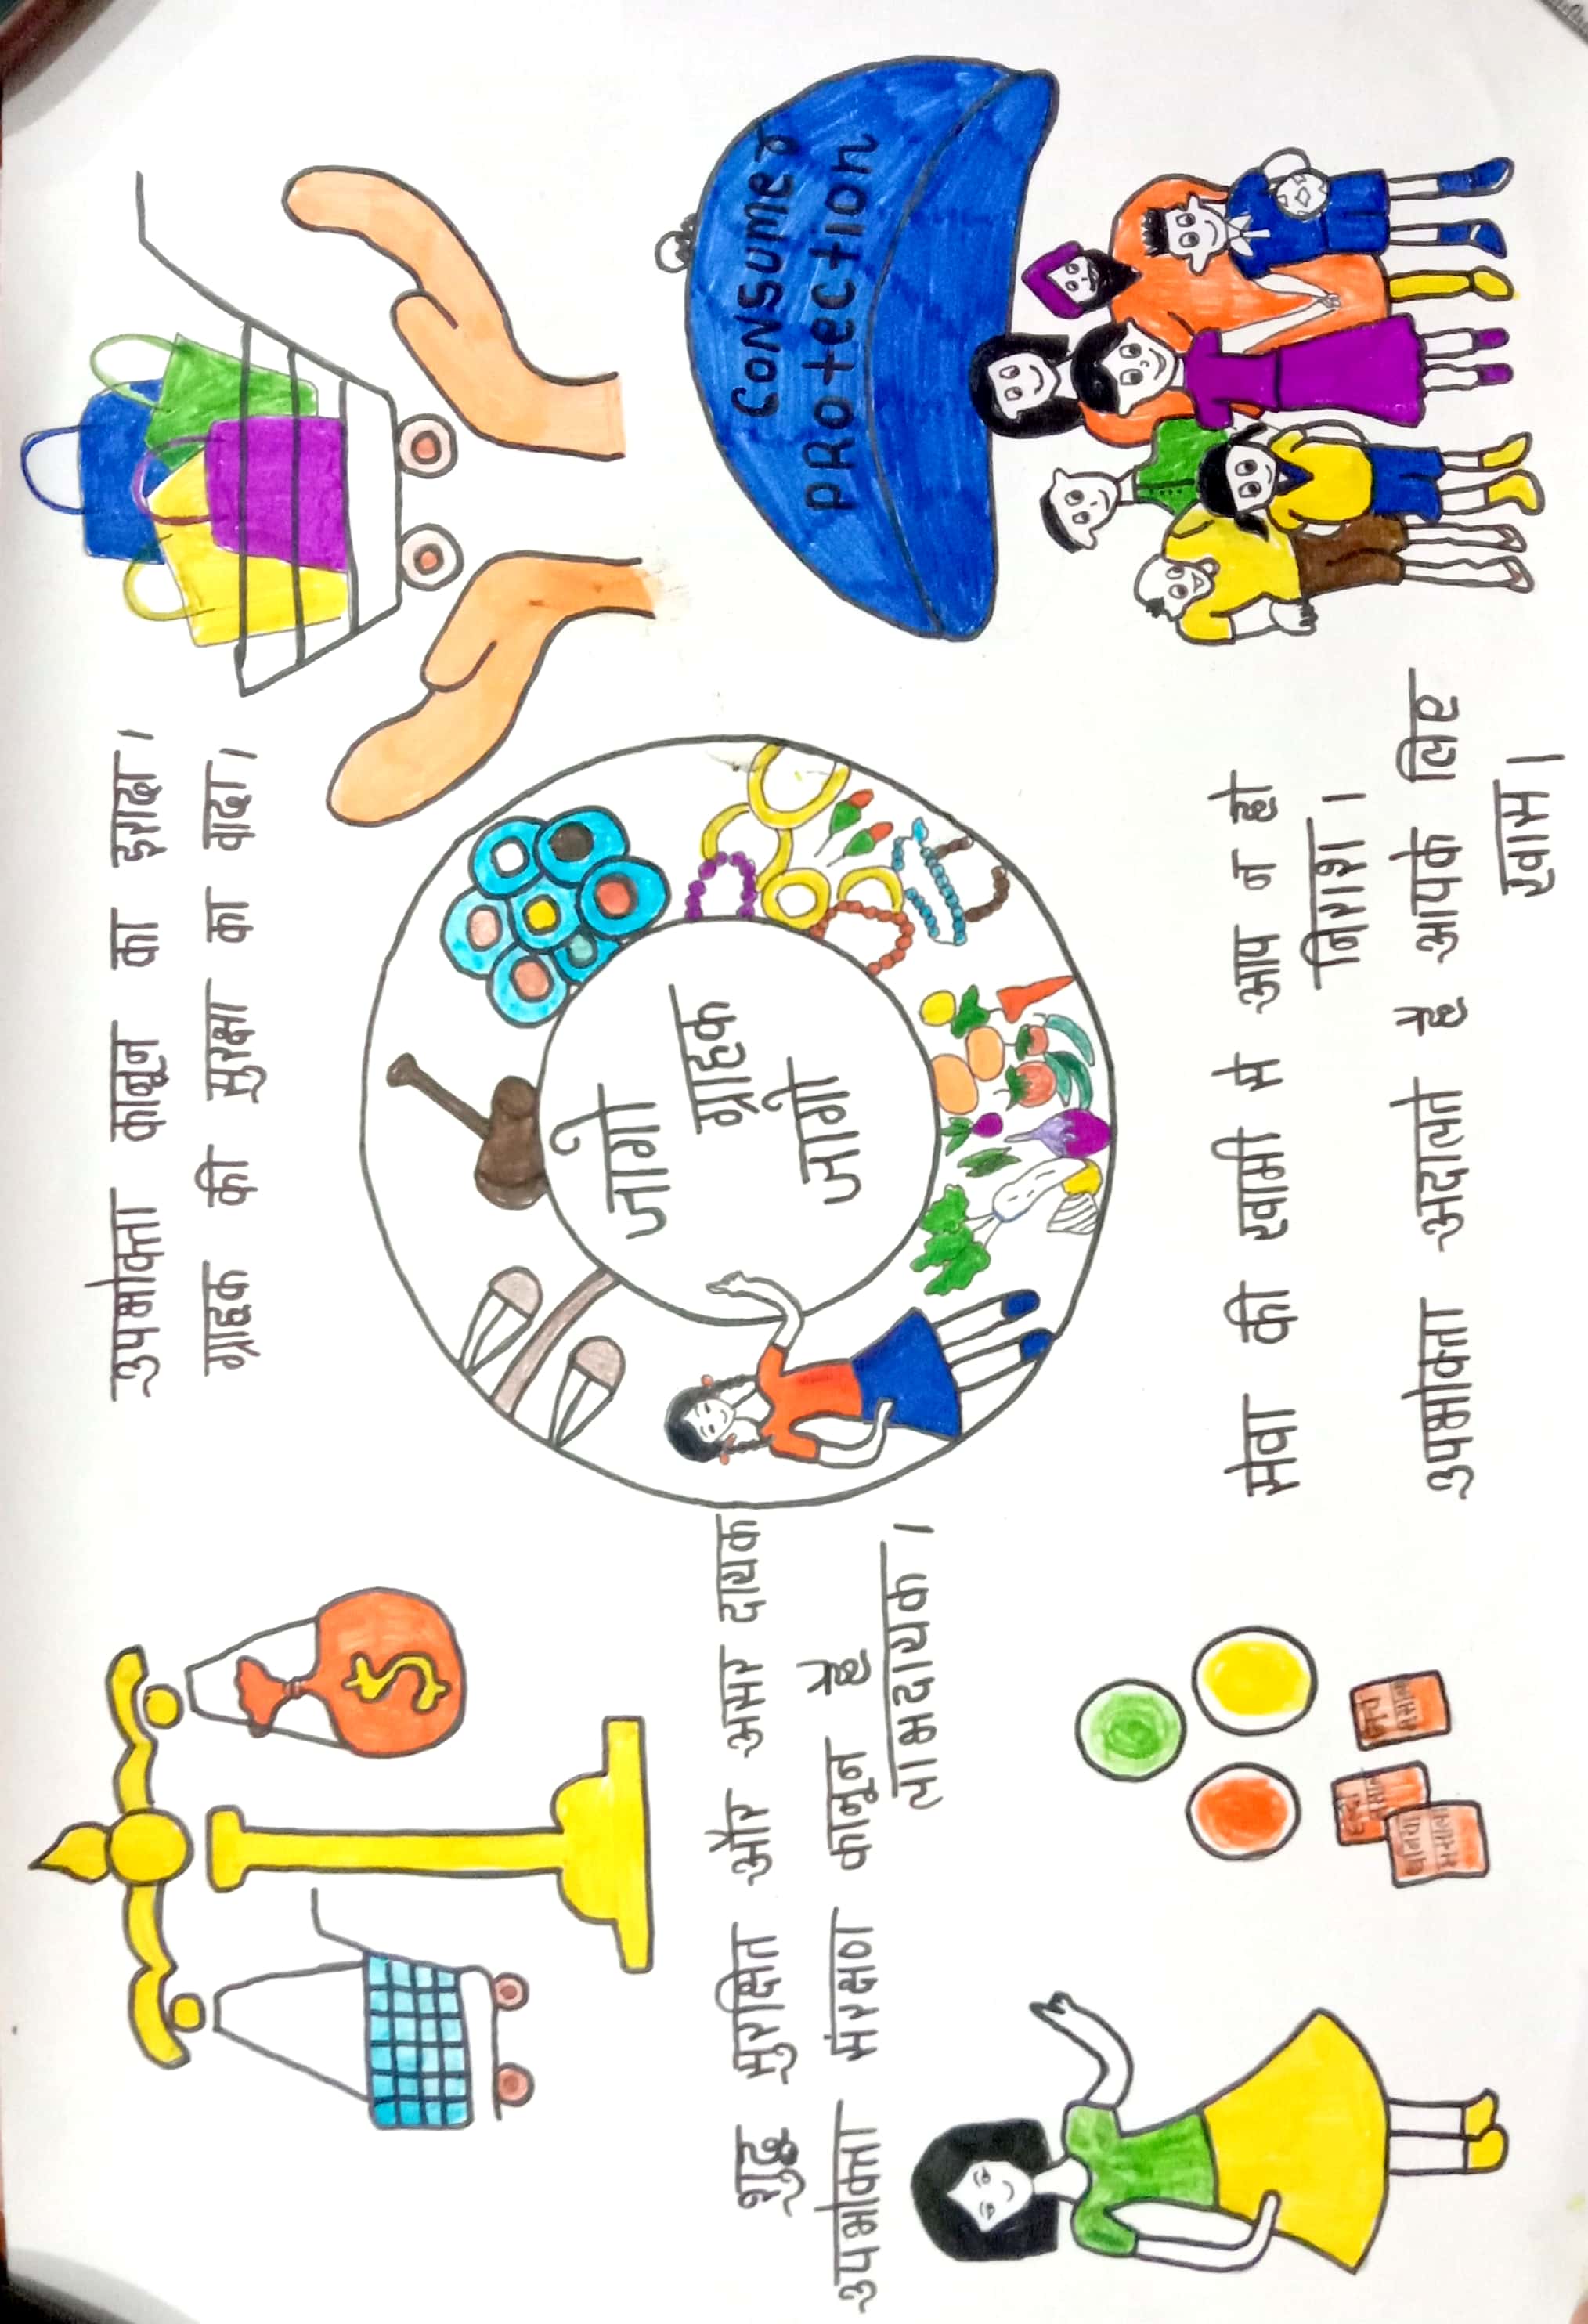 उपभोक्ता कानून का इरादा।
ग्राहक की सुरक्षा का वादा।
जागो
ग्राहक
जागो
Consumer
protection
शुद्ध सुरक्षित और असर दायक
उपभोक्ता संरक्षण कानून है
लाभदायक।
सेवा की खामी से आप न हो
निराश।
उपभोक्ता अदालते है आपके लिए
खास।
धनिया
मसाला